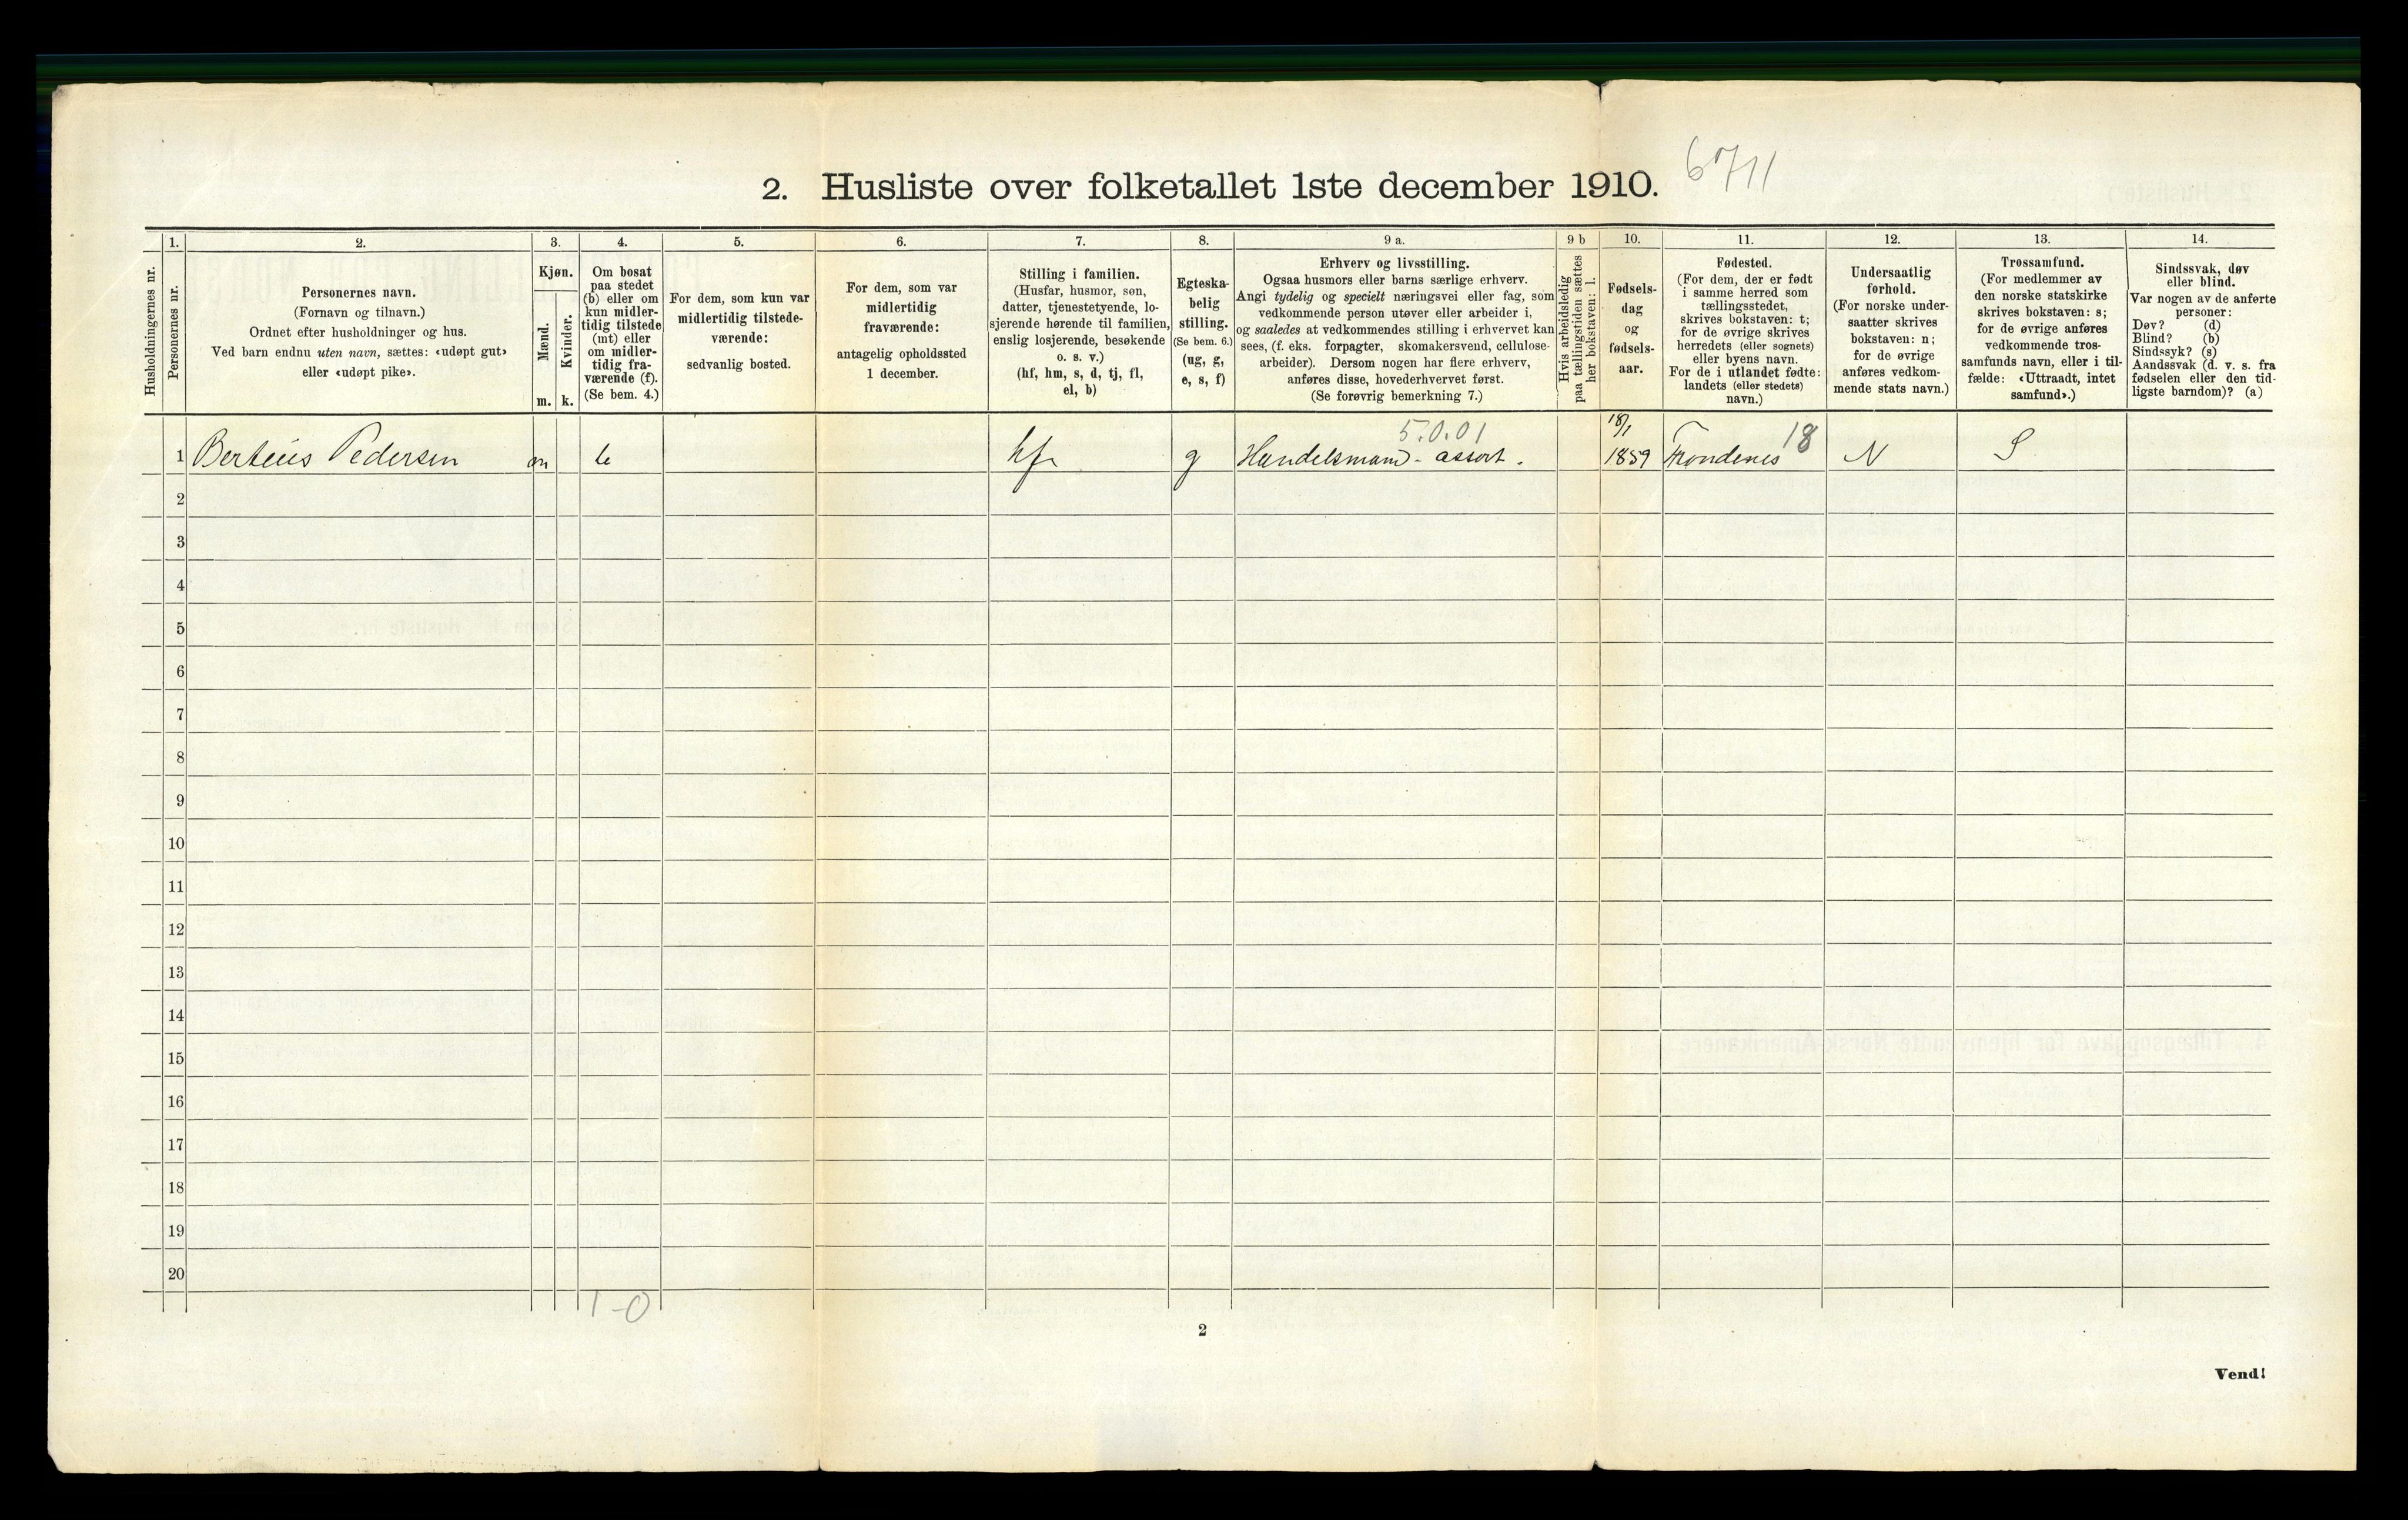 2. Husliste over folketallet 1ste december 1910.
6711
Husholdningernes nr.
1.
Personernes nr.
2.
Personernes navn.
(Fornavn og tilnavn.)
Ordnet efter husholdninger og hus.
Ved barn endnu uten navn, sættes: «udøpt gut»
eller «udøpt pike».
3.
Kjøn.
Mænd.
Kvinder.
m. k.
4.
Om bosat
paa stedet
(b) eller om
kun midler-
tidig tilstede
(mt) eller
om midler-
tidig fra-
værende (f).
(Se bem. 4.)
5.
For dem, som kun var
midlertidig tilstede-
værende:
sedvanlig bosted.
6.
For dem, som var
midlertidig
fraværende:
antagelig opholdssted
1 december.
7.
Stilling i familien.
(Husfar, husmor, søn,
datter, tjenestetyende, lo-
sjerende hørende til familien,
enslig losjerende, besøkende
o. s. v.)
(hf, hm, s, d, tj, fl,
el, b)
8.
Egteska-
belig
stilling.
(Se bem. 6.)
(ug, g,
e, s, f)
9 a.
Erhverv og livsstilling.
Ogsaa husmors eller barns særlige erhverv.
Angi tydelig og specielt næringsvei eller fag, som
vedkommende person utøver eller arbeider i,
og saaledes at vedkommendes stilling i erhvervet kan
sees, (f. eks. forpagter, skomakersvend, cellulose-
arbeider). Dersom nogen har flere erhverv,
anføres disse, hovederhvervet først.
(Se forøvrig bemerkning 7.)
9 b
Hvis arbeidsledig
paa tællingstiden sættes
her bokstaven: l.
10.
Fødsels-
dag
og
fødsels-
aar.
11.
Fødested.
(For dem, der er født
i samme herred som
tællingsstedet,
skrives bokstaven: t;
for de øvrige skrives
herredets (eller sognets)
eller byens navn.
For de i utlandet fødte:
landets (eller stedets)
navn.)
12.
Undersaatlig
forhold.
(For norske under-
saatter skrives
bokstaven: n;
for de øvrige
anføres vedkom-
mende stats navn.)
13.
Trossamfund.
(For medlemmer av
den norske statskirke
skrives bokstaven: s;
for de øvrige anføres
vedkommende tros-
samfunds navn, eller i til-
fælde: «Uttraadt, intet
samfund».)
14.
Sindssvak, døv
eller blind.
Var nogen av de anførte
personer:
Døv? (d)
Blind? (b)
Sindssyk? (s)
Aandssvak (d. v. s. fra
fødselen eller den tid-
ligste barndom)? (a)
5.0.01 18/1 18
1 Berteus Pedersen m b hf g Handelsmand - assort. 1859 Trondenes N S
2
3
4
5
6
7
8
9
10
11
12
13
14
15
16
17
18
19
20
1-0
2
Vend!